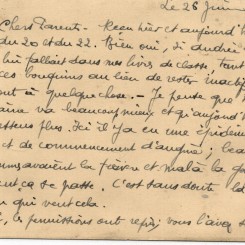 Le 26 Juin
Chers Parents - Reçu hier et aujourd'h
du 20 et du 22. Bien oui, si André
lui fallait dans mes livres de classe, tant
ces bouquins au lieu de rester inactif
ont à quelque chose. - Je pense que
aine va beaucoup mieux et qu'aujourd'h
plus. Ici il y a eu une épidém
et de commencement d'angine; beau
avaient la fièvre et mal à la go
ent ça se passe. C'est sans doute le
qui veut cela.
les permissions ont repris; vous l'avez